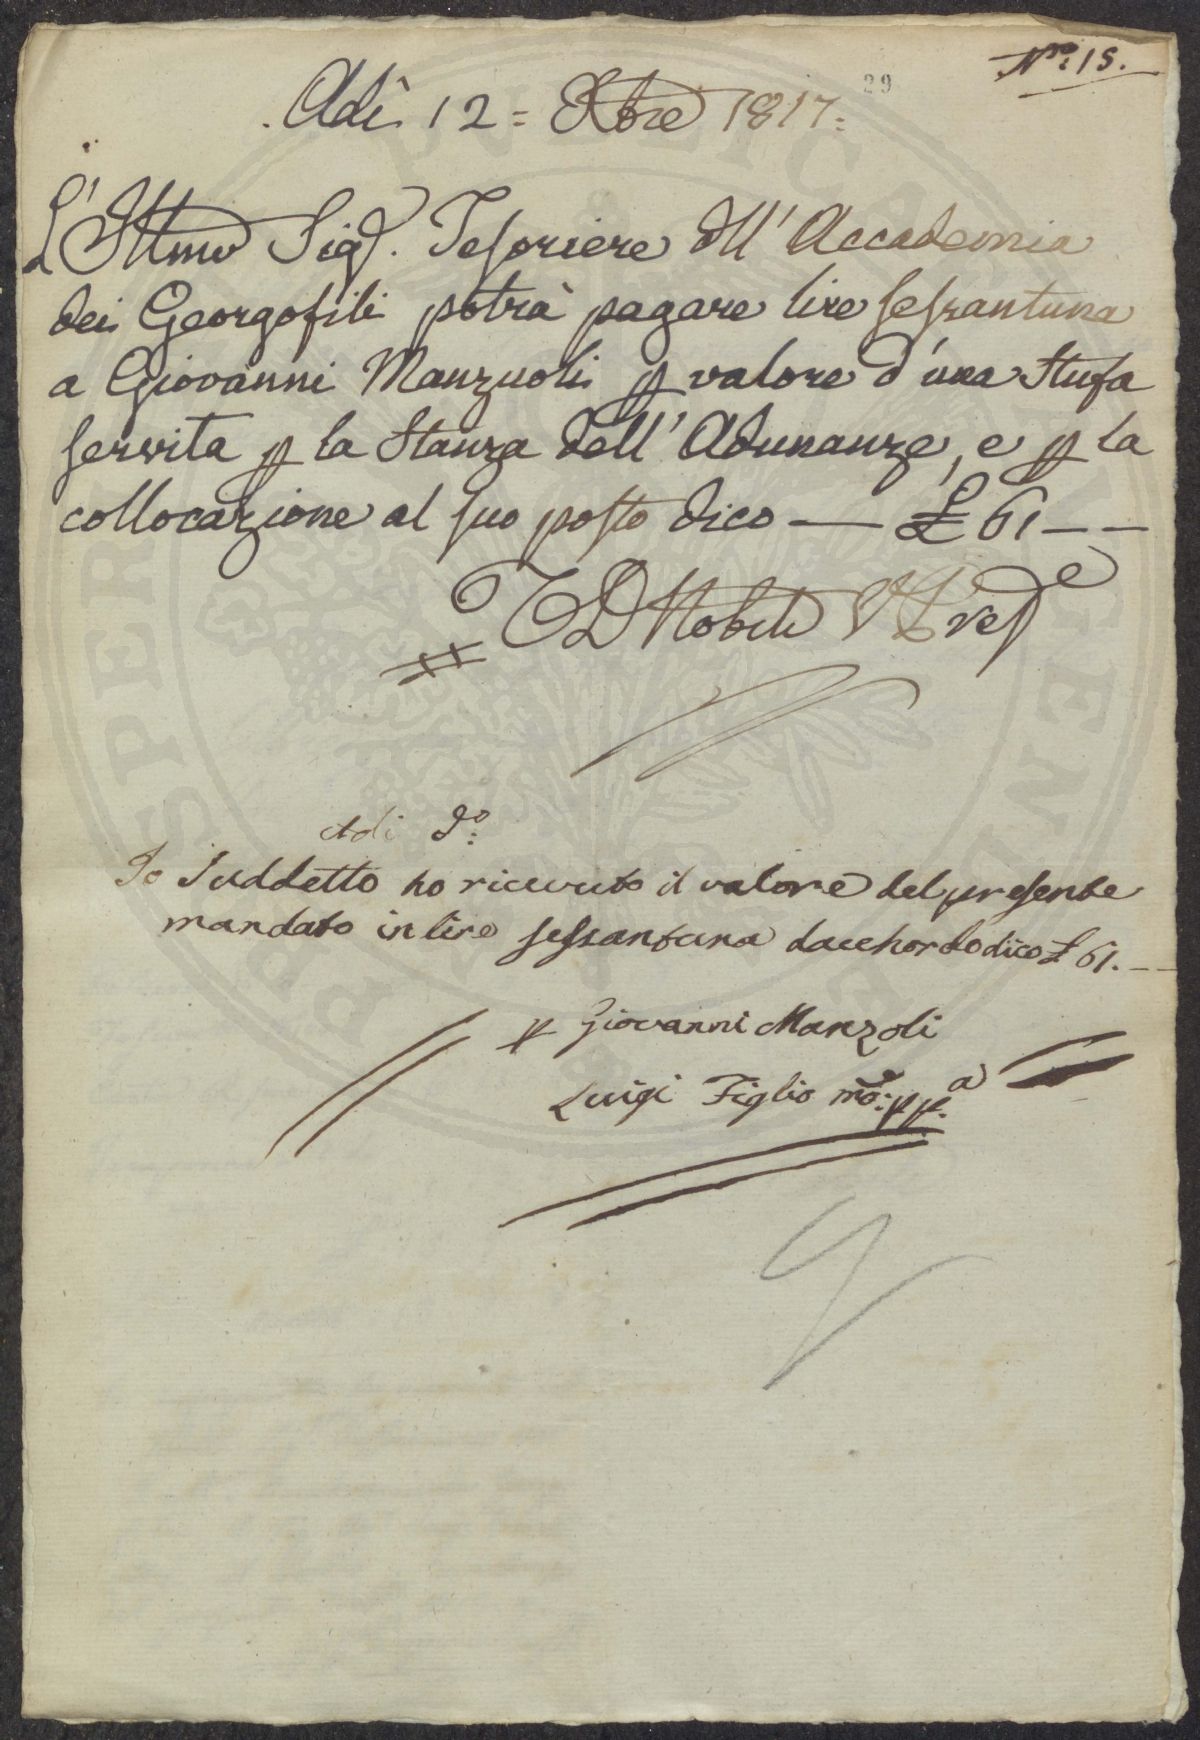 Nro. 15.
29
Adì 12 = Xbre 1817 =
L'Illmo Sigr. Tesoriere dell' Accademia
dei Georgofili potrà pagare lire sessantuna
a Giovanni Manzuoli p valore d'una Stufa
servita p la Stanza dell' Adunanze, e p la
collocazione al suo posto dico — £ 61 — —
Nobili VPresde
Adi do:
Io Suddetto ho ricevuto il valore del presente
mandato in lire sessantuna dacchordo dico £ 61. — —
p Giovanni Manzoli
Luigi Figlio mo: ppa
PVBLICAE
PROSPERITATI